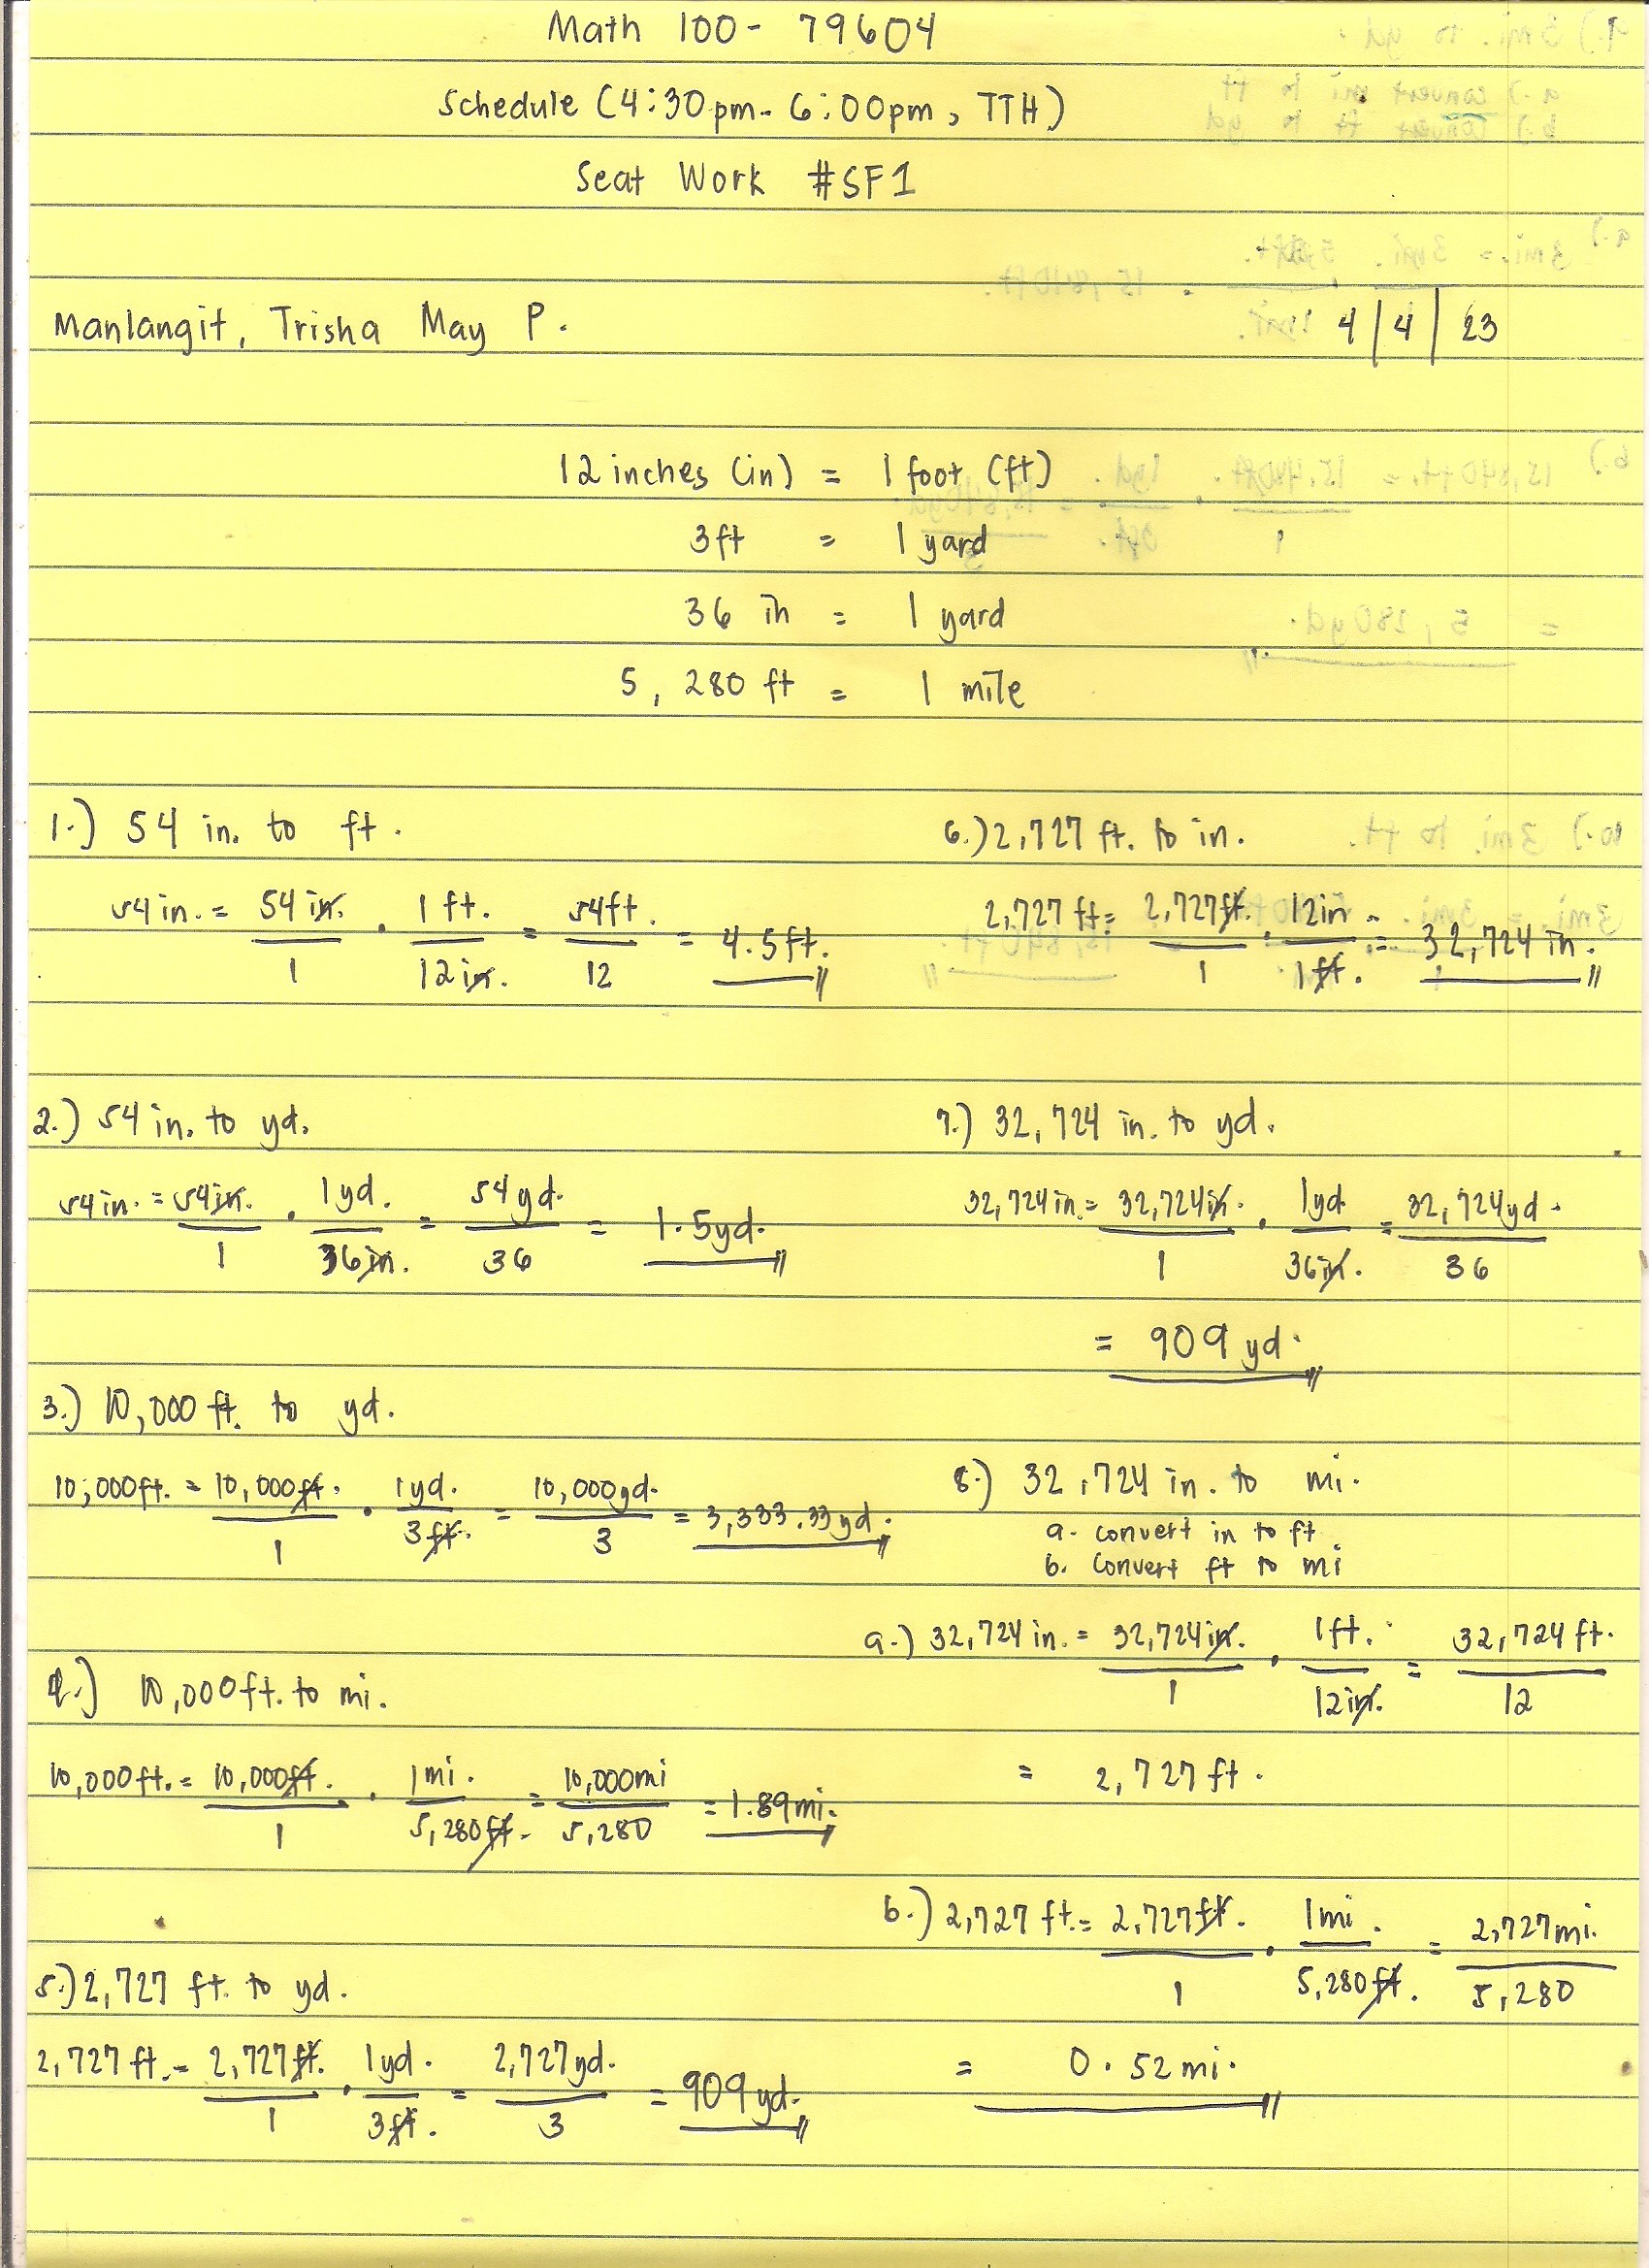 Math 100- 79604
Schedule (4:30pm- 6:00pm, TTH)
Seat Work #SF1
Manlangit, Trisha May P. 4/4/23
12 inches (in) = 1 foot (ft)
3ft = 1 yard
36 in = 1 yard
5,280 ft = 1 mile
1.) 54 in. to ft.
54 in. = 54 in. / 1 · 1 ft. / 12 in. = 54 ft. / 12 = 4.5 ft.
2.) 54 in. to yd.
54 in. = 54 in. / 1 · 1 yd. / 36 in. = 54 yd. / 36 = 1.5 yd.
3.) 10,000 ft. to yd.
10,000 ft. = 10,000 ft. / 1 · 1 yd. / 3 ft. = 10,000 yd. / 3 = 3,333.33 yd.
4.) 10,000 ft. to mi.
10,000 ft. = 10,000 ft. / 1 · 1 mi. / 5,280 ft. = 10,000 mi / 5,280 = 1.89 mi.
5.) 2,727 ft. to yd.
2,727 ft. = 2,727 ft. / 1 · 1 yd. / 3 ft. = 2,727 yd. / 3 = 909 yd.
6.) 2,727 ft. to in.
2,727 ft = 2,727 ft. / 1 · 12 in / 1 ft. = 32,724 in.
7.) 32,724 in. to yd.
32,724 in. = 32,724 in. / 1 · 1 yd / 36 in. = 32,724 yd. / 36
= 909 yd.
8.) 32,724 in. to mi.
a. convert in to ft
b. Convert ft to mi
a.) 32,724 in. = 32,724 in. / 1 · 1 ft. / 12 in. = 32,724 ft. / 12
= 2,727 ft.
b.) 2,727 ft. = 2,727 ft. / 1 · 1 mi. / 5,280 ft. = 2,727 mi. / 5,280
= 0.52 mi.